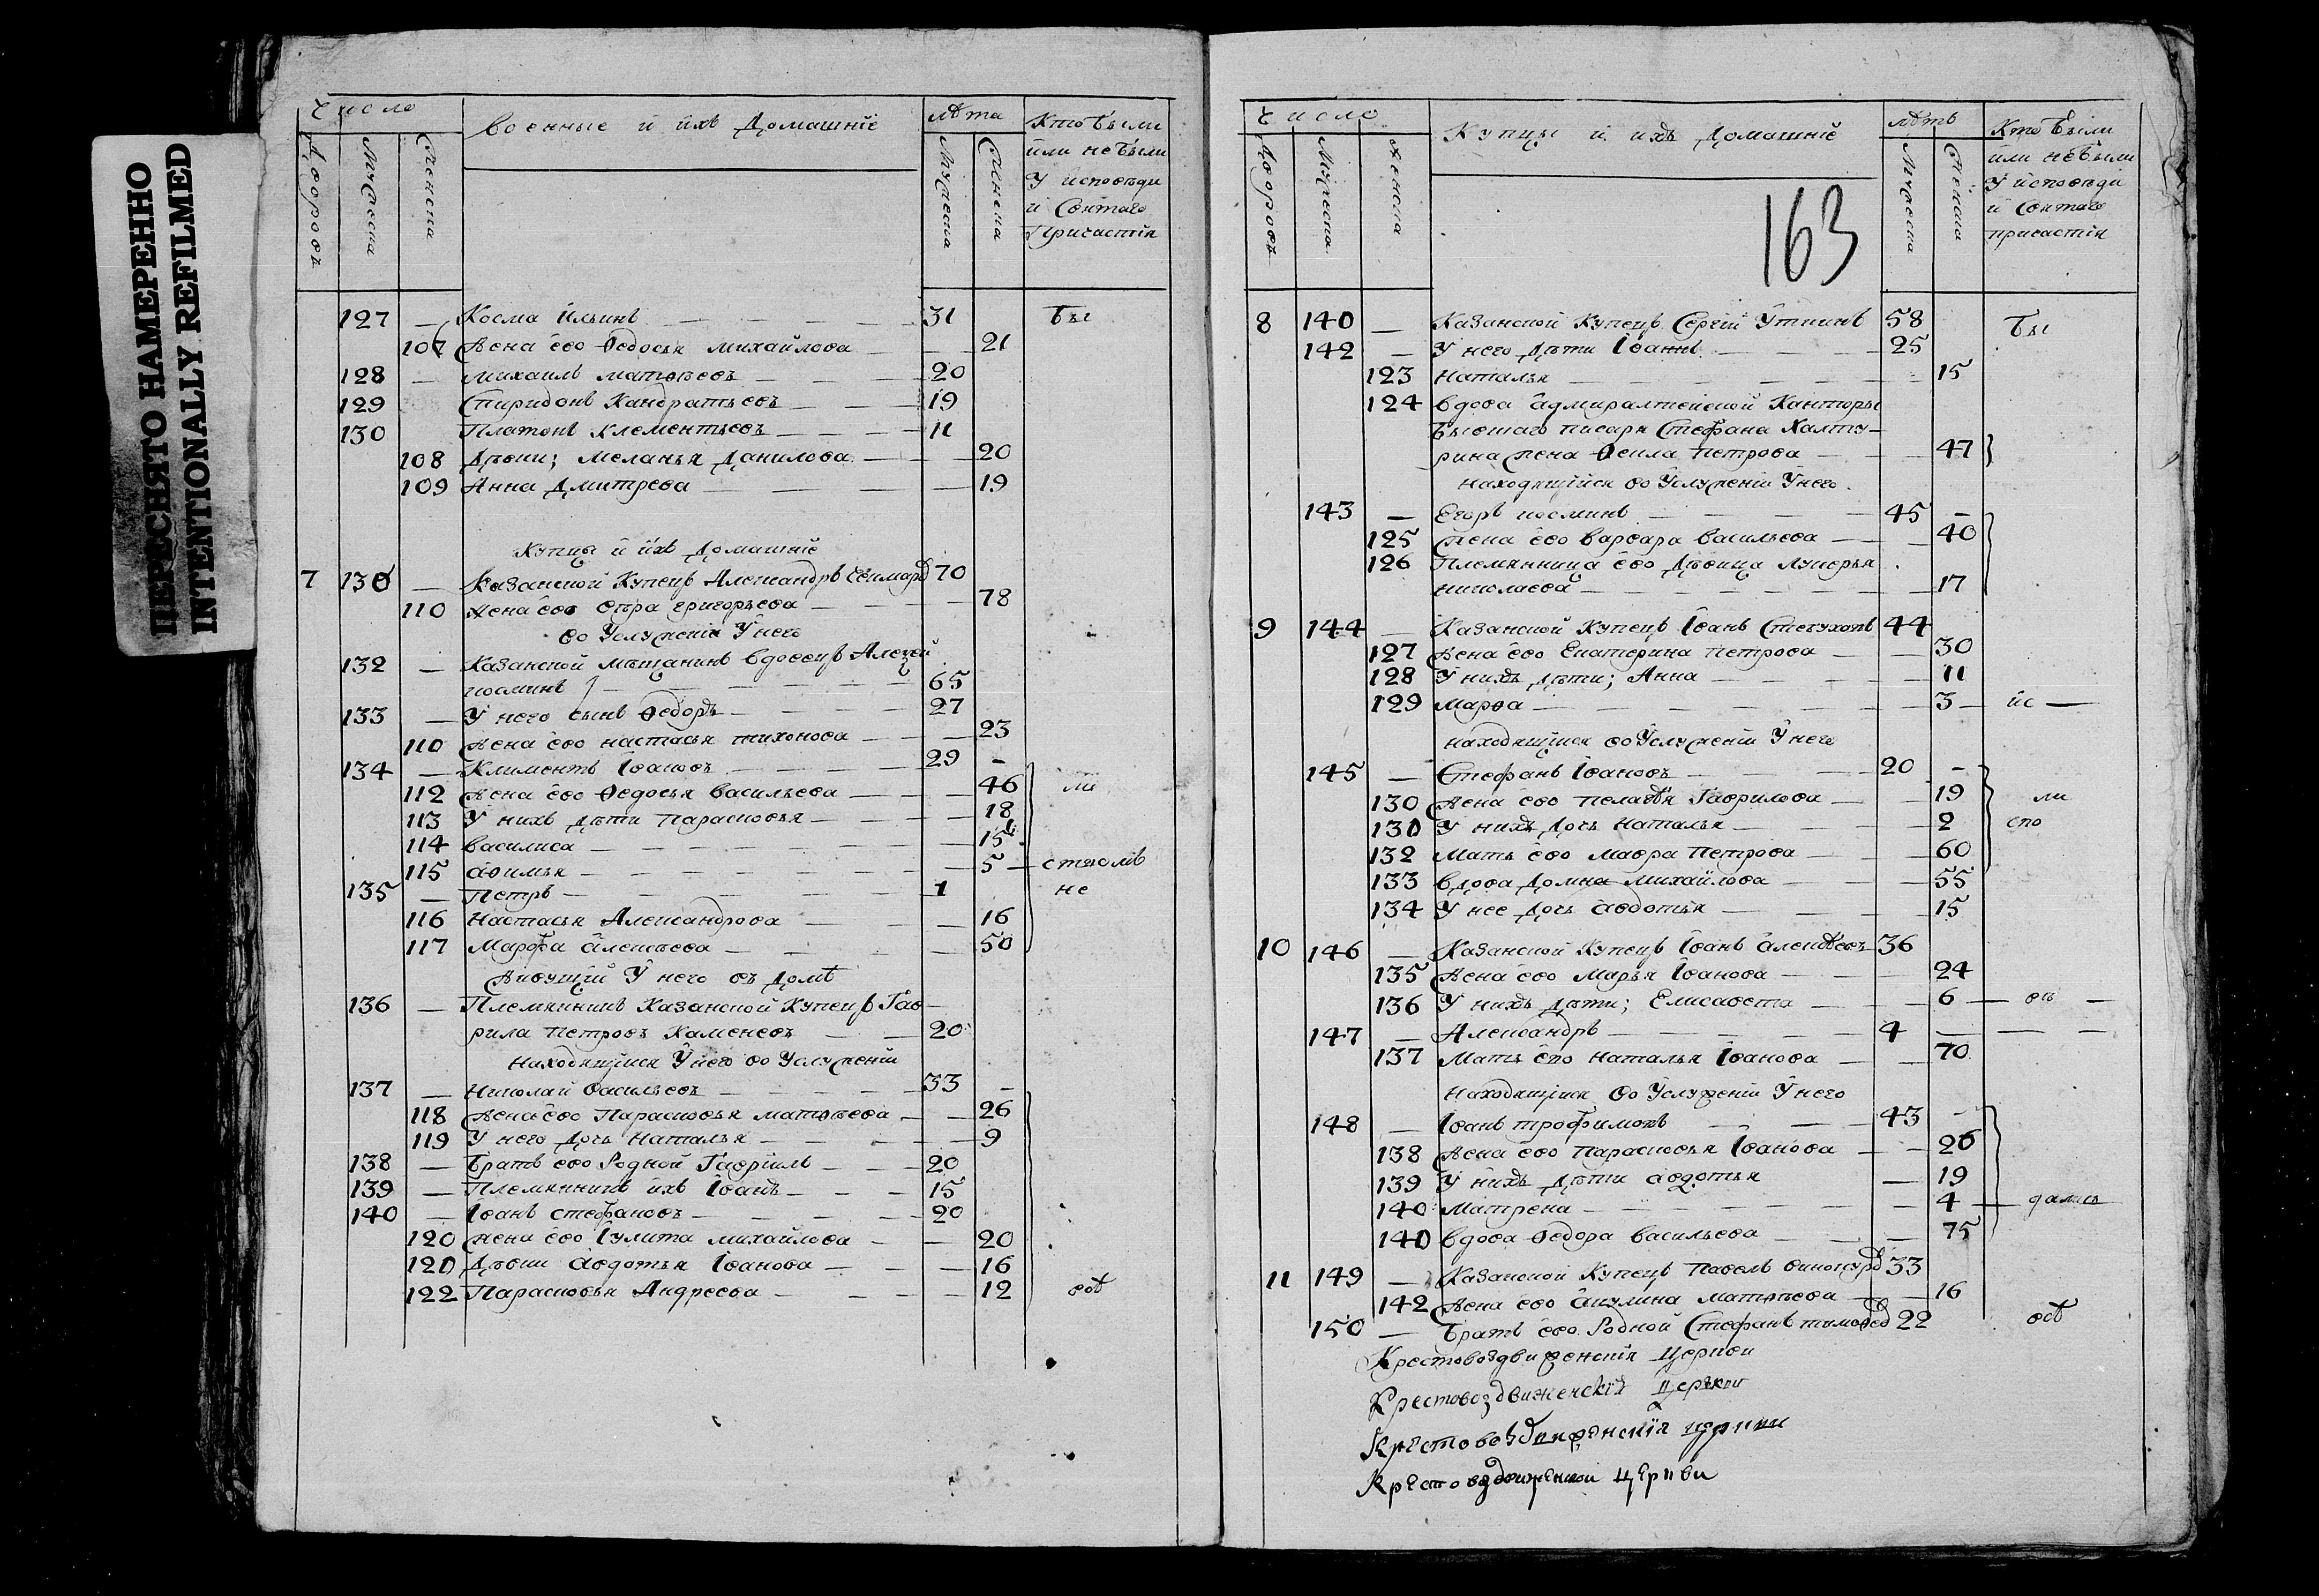 ПЕРЕСНЯТО НАМЕРЕННО
INTENTIONALLY REFILMED
Число
военные и ихъ Домашнiе
лѣта
Кто были
или небыли
у исповѣди
и Святаго
Причастiя
Дворовъ
Мужеска
Женска
Мужеска
Женска
127 — Косма Ильинъ — 31 бы
107 Жена ево Ѳедосья михайлова — 21
128 — михаилъ матвѣевъ — 20
129 Спиридонъ Кандратьевъ — 19
130 Платонъ Клементьевъ — 11
108 Дѣвки; меланья Данилова — 20
109 Анна Дмитрева — 19
Купцы и ихъ Домашнiе
7 130 — Казанской Купецъ Александръ 70
110 Жена ево вѣра григорьева — 78
во Услуженiи У него
132 — Казанской мѣщанинъ вдовецъ Алеѯей
косминъ — 65
133 — У него сынъ Ѳедоръ — 27
110 Жена ево настасья тихонова — 23
134 — Климентъ Iвановъ — 29 —
112 Жена ево Ѳедосья васильева — 46 ли
113 У нихъ дѣти Парасковья — 18
114 василиса — 15
115 афимья — 5
135 — Петръ — 1 не
116 Настасья Александрова — 16
117 Марфа алексѣева — 50
Живущiй У него въ домѣ
136 — Племянникъ Казанской Купецъ Гав-
рила петровъ Каменевъ — 20
Находящiйся У него во Услуженiи
137 — Николай васильевъ — 33 —
118 Жена ево Парасковья матвѣева — 26
119 У него дочь Наталья — 9
138 — братъ ево Родной Гаврiилъ — 20
139 — Племянникъ ихъ Iванъ — 15
140 — Iванъ стефановъ — 20
120 Жена ево Iулита михайлова — 20
121 Дѣвки авдотья Iванова — 16
122 Парасковья Андреева — 12 всѣ
Число
Купцы и ихъ Домашнiе
лѣтъ
Кто были
или небыли
у исповѣди
и Святаго
причастiя
Дворовъ
Мужеска
Женска
Мужеска
Женска
163
8 140 — Казанской Купецъ Сергiй Уткинъ 58 бы
142 — У него дѣти Iваннъ — 25
123 Наталья — 15
124 вдова адмиралтейской Канторы
бывшаго писаря Стефана Халту-
рина жена Ѳекла петрова — 47
находящiйся во Услуженiи У него
143 — Егоръ косминъ — 45 —
125 Жена ево варвара васильева — 40
126 Племянница ево дѣвица лукерья
николаева — 17
9 144 — Казанской Купецъ Iванъ 44
127 Жена ево Екатерина петрова — 30
128 У нихъ дѣти; Анна — 11
129 марѳа — 3 — ис —
находящiйся во Услуженiи У него
145 — Стефанъ Iвановъ — 20 —
130 Жена ево пелагѣя Гаврилова — 19 ли
131 У нихъ дочь Наталья — 2 спо
132 мать ево мавра петрова — 60
133 вдова домна михайлова — 55
134 У нее дочь авдотья — 15
10 146 — Казанской Купецъ Iванъ алексѣевъ 36
135 Жена ево марья Iванова — 24
136 У нихъ дѣти; Елисавета — 6 — вѣ —
147 — Александръ — 4 — — —
137 мать ево наталья Iванова — 70
находящiйся во Услуженiи У него
148 — Iванъ трофимовъ — 43 —
138 Жена ево парасковья Iванова — 26
139 У нихъ дѣти авдотья — 19
140 матрена — 4 — дались
140 вдова Ѳедора васильева — 75
11 149 — Казанской Купецъ павелъ 33
142 Жена ево акулина матвѣева — 16
150 — братъ ево Родной Стефанъ 22 всѣ
Крестовоздвиженскiя Церкви
Крестовоздвиженскiя Церкви
Крестовоздвиженскiя церкви
Крестовоздвиженской церкви